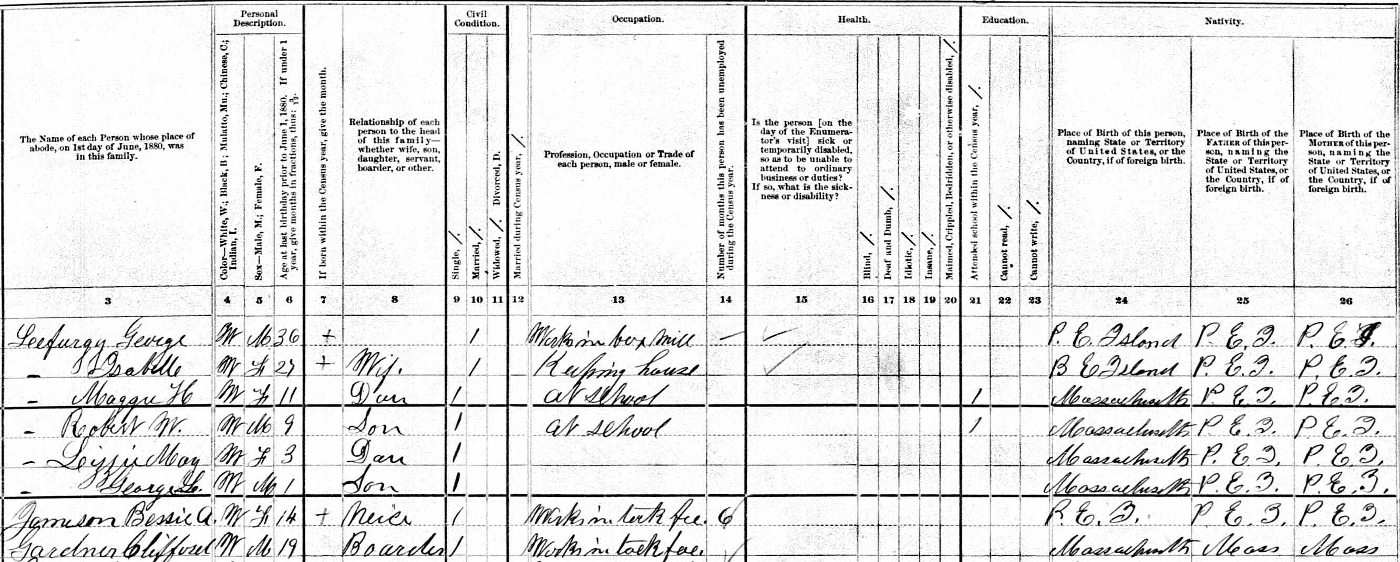 Personal Description.
Civil Condition.
Occupation.
Health.
Education.
Nativity.
The Name of each Person whose place of abode, on 1st day of June, 1880, was in this family.
Color—White, W.; Black, B.; Mulatto, Mu.; Chinese, C.; Indian, I.
Sex—Male, M.; Female, F.
Age at last birthday prior to June 1, 1880. If under 1 year, give months in fractions, thus: 3/12.
If born within the Census year, give the month.
Relationship of each person to the head of this family—whether wife, son, daughter, servant, boarder, or other.
Single, /.
Married, /.
Widowed, /. Divorced, D.
Married during Census year, /.
Profession, Occupation or Trade of each person, male or female.
Number of months this person has been unemployed during the Census year.
Is the person [on the day of the Enumerator's visit] sick or temporarily disabled, so as to be unable to attend to ordinary business or duties? If so, what is the sickness or disability?
Blind, /.
Deaf and Dumb, /.
Idiotic, /.
Insane, /.
Maimed, Crippled, Bedridden, or otherwise disabled, /.
Attended school within the Census year, /.
Cannot read, /.
Cannot write, /.
Place of Birth of this person, naming State or Territory of United States, or the Country, if of foreign birth.
Place of Birth of the FATHER of this person, naming the State or Territory of United States, or the Country, if of foreign birth.
Place of Birth of the MOTHER of this person, naming the State or Territory of United States, or the Country, if of foreign birth.
3 4 5 6 7 8 9 10 11 12 13 14 15 16 17 18 19 20 21 22 23 24 25 26
Leefurgy George W M 36 + / Works in box mill — P. E. Island P. E. I. P. E. I.
– Isabelle W F 27 + Wife / Keeping house P. E. Island P. E. I. P. E. I.
– Maggie H W F 11 Dau / at school / Massachusetts P. E. I. P. E. I.
– Robert W. W M 9 Son / at school / Massachusetts P. E. I. P. E. I.
– Lizzie May W F 3 Dau / Massachusetts P. E. I. P. E. I.
– George L. W M 1 Son / Massachusetts P. E. I. P. E. I.
Jameson Bessie A. W F 14 + Neice / Works in tack fac. 6 P. E. I. P. E. I. P. E. I.
Gardner Clifford W M 19 Boarder / Works in tack fac. Massachusetts Mass Mass